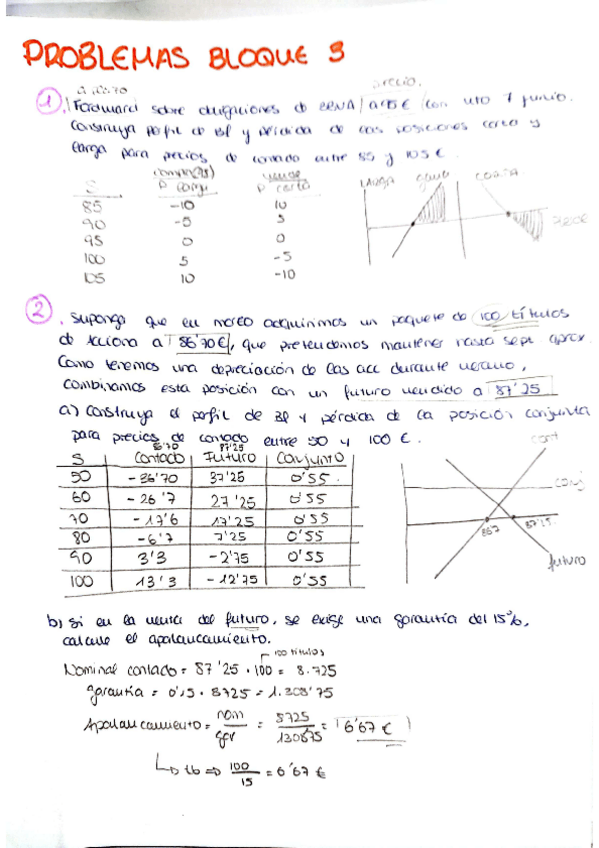 PROBLEMAS BLOQUE 3
a plazo
precio.
1) Forward sobre obligaciones de RENFE a 95€ con vto 7 junio.
Construya perfil de Bf y pérdida de las posiciones corta y
larga para precios de contado entre 85 y 105 €.
vende
S P larga P corta LARGA CORTA
85 -10 10
90 -5 5
95 0 0
100 5 -5
105 10 -10
2
. Suponga que en marzo adquirimos un paquete de 100 títulos
de acciona a 86'70€, que pretendemos mantener hasta sept aprox.
Como tenemos una depreciación de las acc durante verano,
combinamos esta posición con un futuro vendido a 87'25
a) Construya el perfil de Bf y pérdida de la posición conjunta
para precios de contado entre 50 y 100 €.
86'70 87'25
S Contado Futuro Conjunto
50 -36'70 37'25 0'55
60 -26'7 27'25 0'55
70 -17'6 17'25 0'55
80 -6'7 7'25 0'55
90 3'3 -2'75 0'55
100 13'3 -12'75 0'55
cont
conj
867 87'25
futuro
b) Si en la venta del futuro, se exige una garantía del 15%,
calcule el apalancamiento.
100 títulos
Nominal contado = 87'25 · 100 = 8.725
garantía = 0'15 · 8725 = 1.308'75
Apalancamiento = nom/gar = 8725/1308'75 = 6'67 €
↳ tb ⇒ 100/15 = 6'67 €